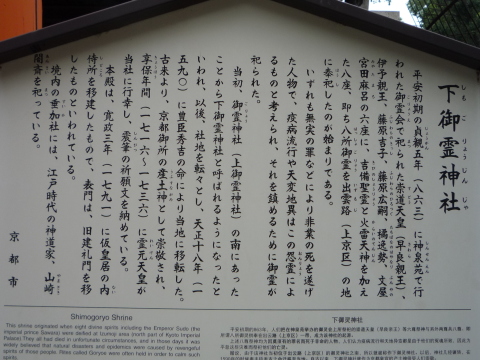 下御霊神社
しもごりょうじんじゃ
平安初期の貞観五年（八六三）に神泉苑で行
われた御霊会で祀られた崇道天皇（早良親王）、
伊予親王、藤原吉子、藤原広嗣、橘逸勢、文屋
宮田麻呂の六座に、吉備聖霊と火雷天神を加え
た八座、即ち八所御霊を出雲路（上京区）の地
に奉祀したのが始まりである。
いずれも無実の罪などにより非業の死を遂げ
た人物で、疫病流行や天変地異はこの怨霊によ
るものと考えられ、それを鎮めるために御霊が
祀られた。
当初、御霊神社（上御霊神社）の南にあった
ことから下御霊神社と呼ばれるようになったと
いわれ、以後、社地を転々とし、天正十八年（一
五九〇）に豊臣秀吉の命により当地に移転した。
古来より、京都御所の産土神として崇敬され、
享保年間（一七一六～一七三六）に霊元天皇が
当社に行幸し、震筆の祈願文を納めている。
本殿は、寛政三年（一七九一）に仮皇居の内
侍所を移建したもので、表門は、旧建礼門を移
したものといわれている。
境内の垂加社には、江戸時代の神道家、山崎
闇斎を祀っている。
京都市
Shimogoryo Shrine
This shrine originated when eight divine spirits including the Emperor Sudo (the
imperial prince Sawara) were deified at Izumoji area (north part of Kyoto Imperial
Palace). They all had died in unfortunate circumstances, and in those days it was
widely believed that natural disasters and epidemics were caused by revengeful
spirits of those people. Rites called Goryoe were often held in order to calm such
spirits.
下御灵神社